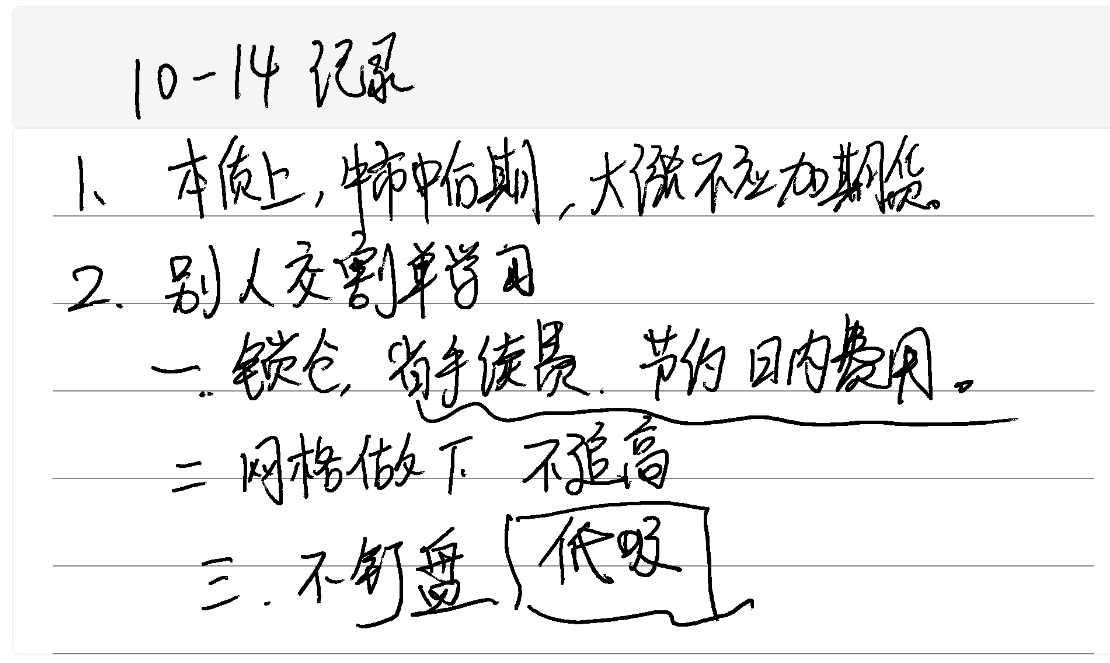 10-14 记录
1、本质上，牛市中后期，大涨不应加期货。
2. 别人交割单学习
一. 锁仓，省手续费. 节约日内费用。
二 网格做下 不追高
三. 不钉盘 低吸